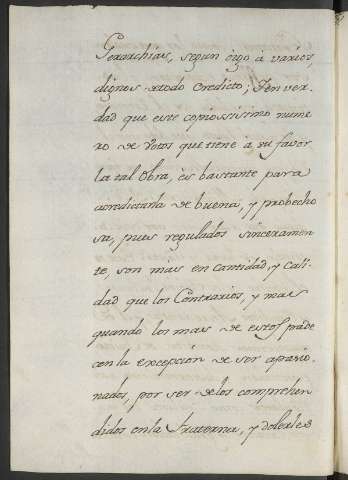 Gerarchias, segun oigo à varios,
dignos de todo credito; Y en ver-
dad que este copiossisimo nume
ro de votos que tiene à su favor
la tal Obra, es bastante para
acreditarla de buena, y probecho
sa, pues regulados sinceramen
te, son mas en cantidad, y cali-
dad que los Contrarios, y mas
quando los mas de estos pade
cen la excepcion de ser apasio-
nados, por ser de los comprehen
didos en la Fraterna, y dolerles